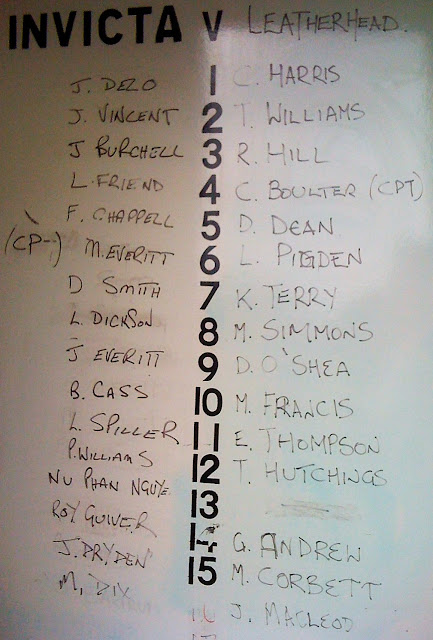 INVICTA V LEATHERHEAD.
J. DEZO 1 C. HARRIS
J. VINCENT 2 T. WILLIAMS
J BURCHELL 3 R. HILL
L. FRIEND 4 C. BOULTER (CPT)
F. CHAPPELL 5 D. DEAN
(CP--) M. EVERITT 6 L. PIGDEN
D SMITH 7 K. TERRY
L. DICKSON 8 M. SIMMONS
J EVERITT 9 D. O'SHEA
B. CASS 10 M. FRANCIS
L. SPILLER 11 E. THOMPSON
P. WILLIAMS 12 T. HUTCHINGS
NU PHAN NGUYE. 13
ROY GUIVER 14 G. ANDREW
J. DRYDEN 15 M. CORBETT
M. DIX J. MACLEOD